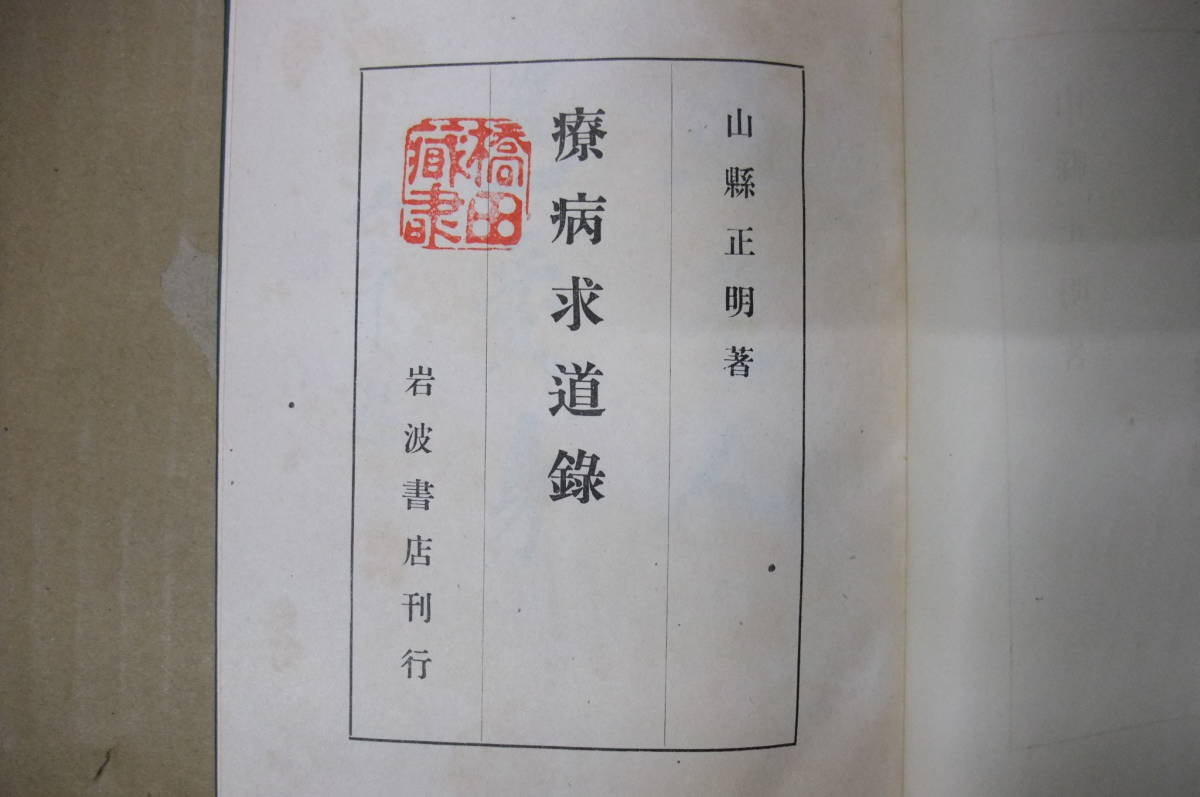 山縣正明著
療病求道錄
橋田
藏書
岩波書店刊行